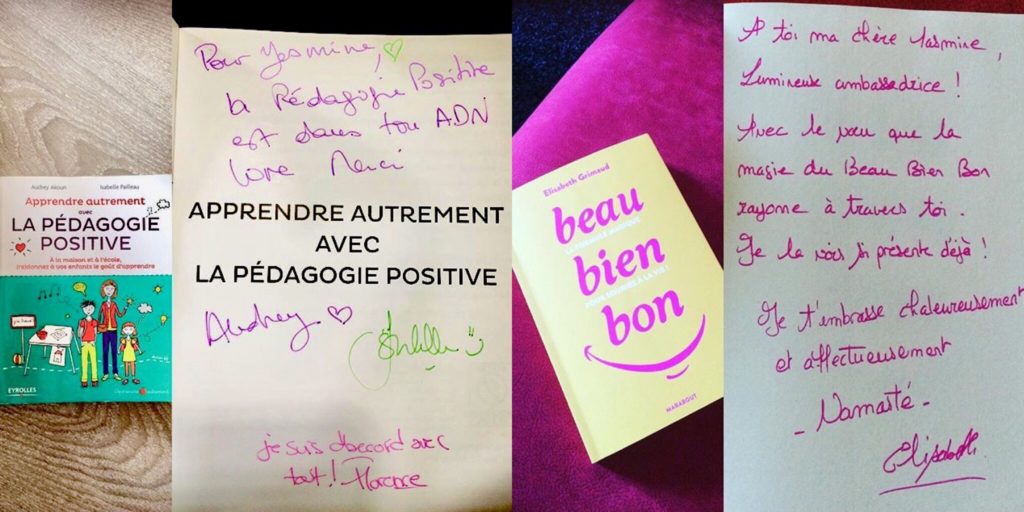 Audrey Akoun Isabelle Pailleau
Apprendre autrement
avec
LA PÉDAGOGIE
POSITIVE
À la maison et à l'école,
(re)donnez à vos enfants le goût d'apprendre
EYROLLES
Pour Yasmine,
la Pédagogie Positive
est dans ton ADN
love Merci
APPRENDRE AUTREMENT
AVEC
LA PÉDAGOGIE POSITIVE
Audrey
Isabelle
je suis d'accord avec
tout! Florence
Elisabeth Grimaud
beau
LA FORMULE MAGIQUE
bien
POUR SOURIRE À LA VIE !
bon
MARABOUT
A toi ma chère Yasmine,
Lumineuse ambassadrice !
Avec le vœu que la
magie du Beau Bien Bon
rayonne à travers toi.
Je la vois si présente déjà !
Je t'embrasse chaleureusement
et affectueusement
- Namasté -
Elisabeth